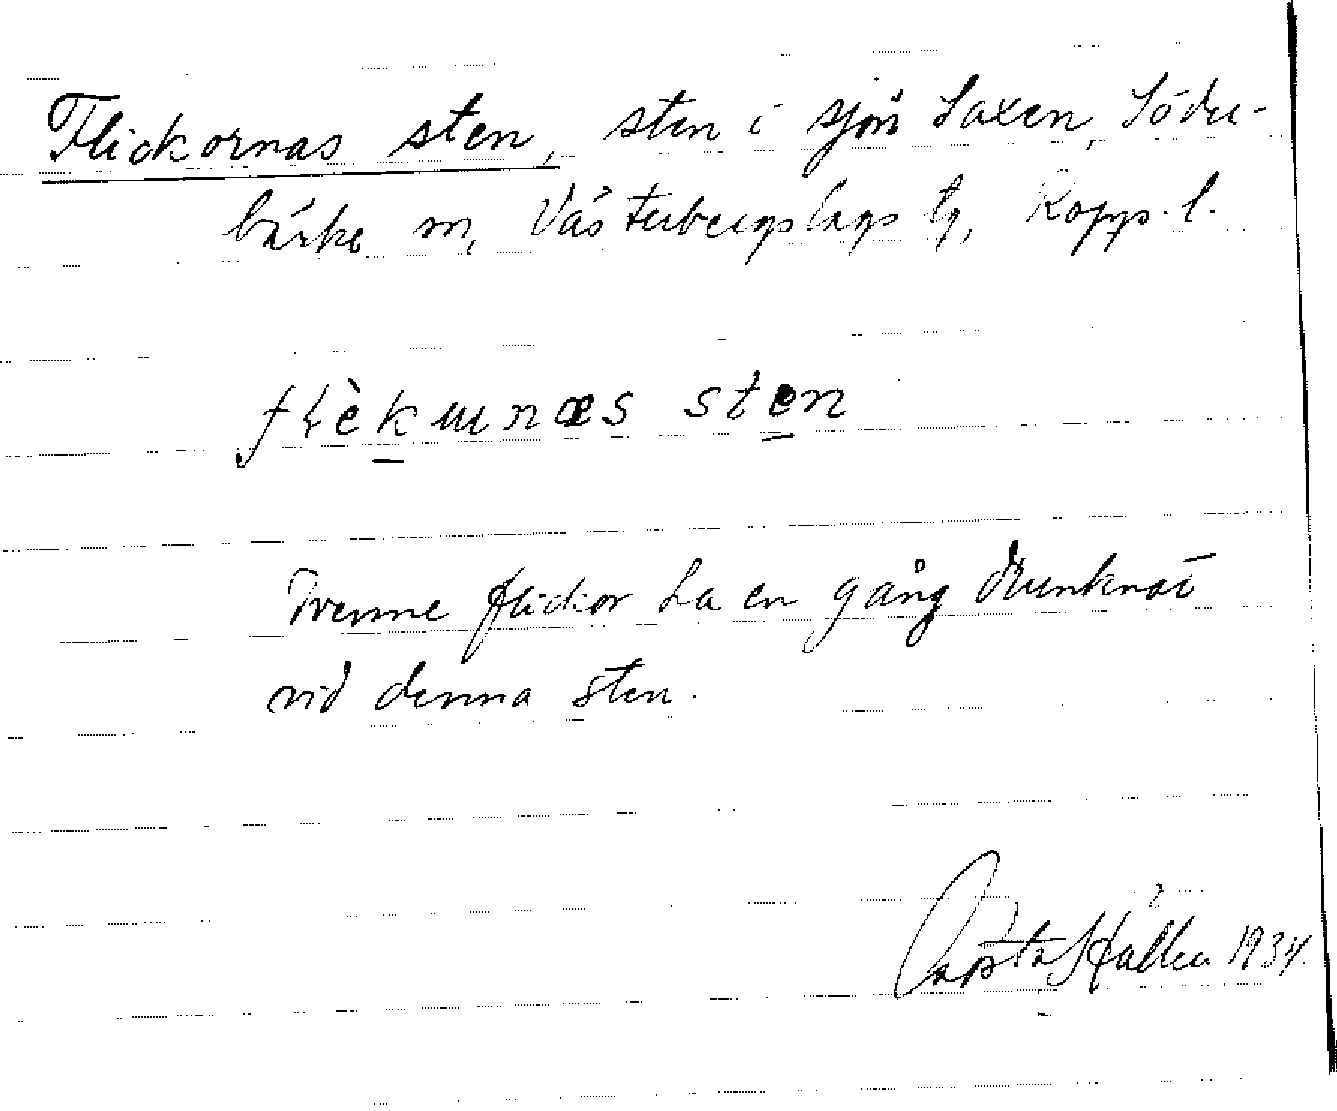 Flickornas sten, sten i sjön Saxen, Söder-
bärke sn, Västerbergslags tg, Kopp. l.
flèkɯnæs sten
Trenne flickor ha en gång drunknat
vid denna sten.
1934.